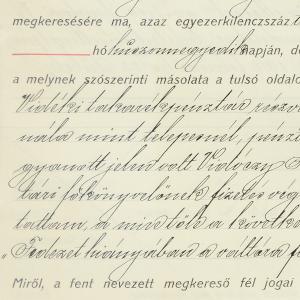 megkeresésére ma, azaz egyezerkilenczszáz
hó huszonnegyedik napján, de
a melynek szószerinti másolata a tulsó oldalo
Vidéki takarékpénztár részvé
nála mint telepesnél, pénz
gyanott jelen volt Vidoczy
tári főkönyvelőnek fizetés vég
tattam, a mintőlök a követke
„Fedezet hiányában a váltóra fi
Miről, a fent nevezett megkereső fél jogai